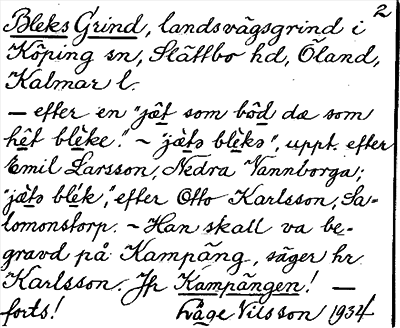 2
Bleks Grind, landsvägsgrind i
Köping sn, Slättbo hd, Öland,
Kalmar l.
— efter en "jät som bôd dæ som
hêt blèke." ~ "jäts blèks", uppt. efter
Emil Larsson, Nedra Vannborga;
"jäts blék", efter Otto Karlsson, Sa-
lomonstorp. — Han skall va be-
gravd på Kampäng, säger hr
Karlsson. Jfr Kampängen! —
forts! Åge Nilsson 1934